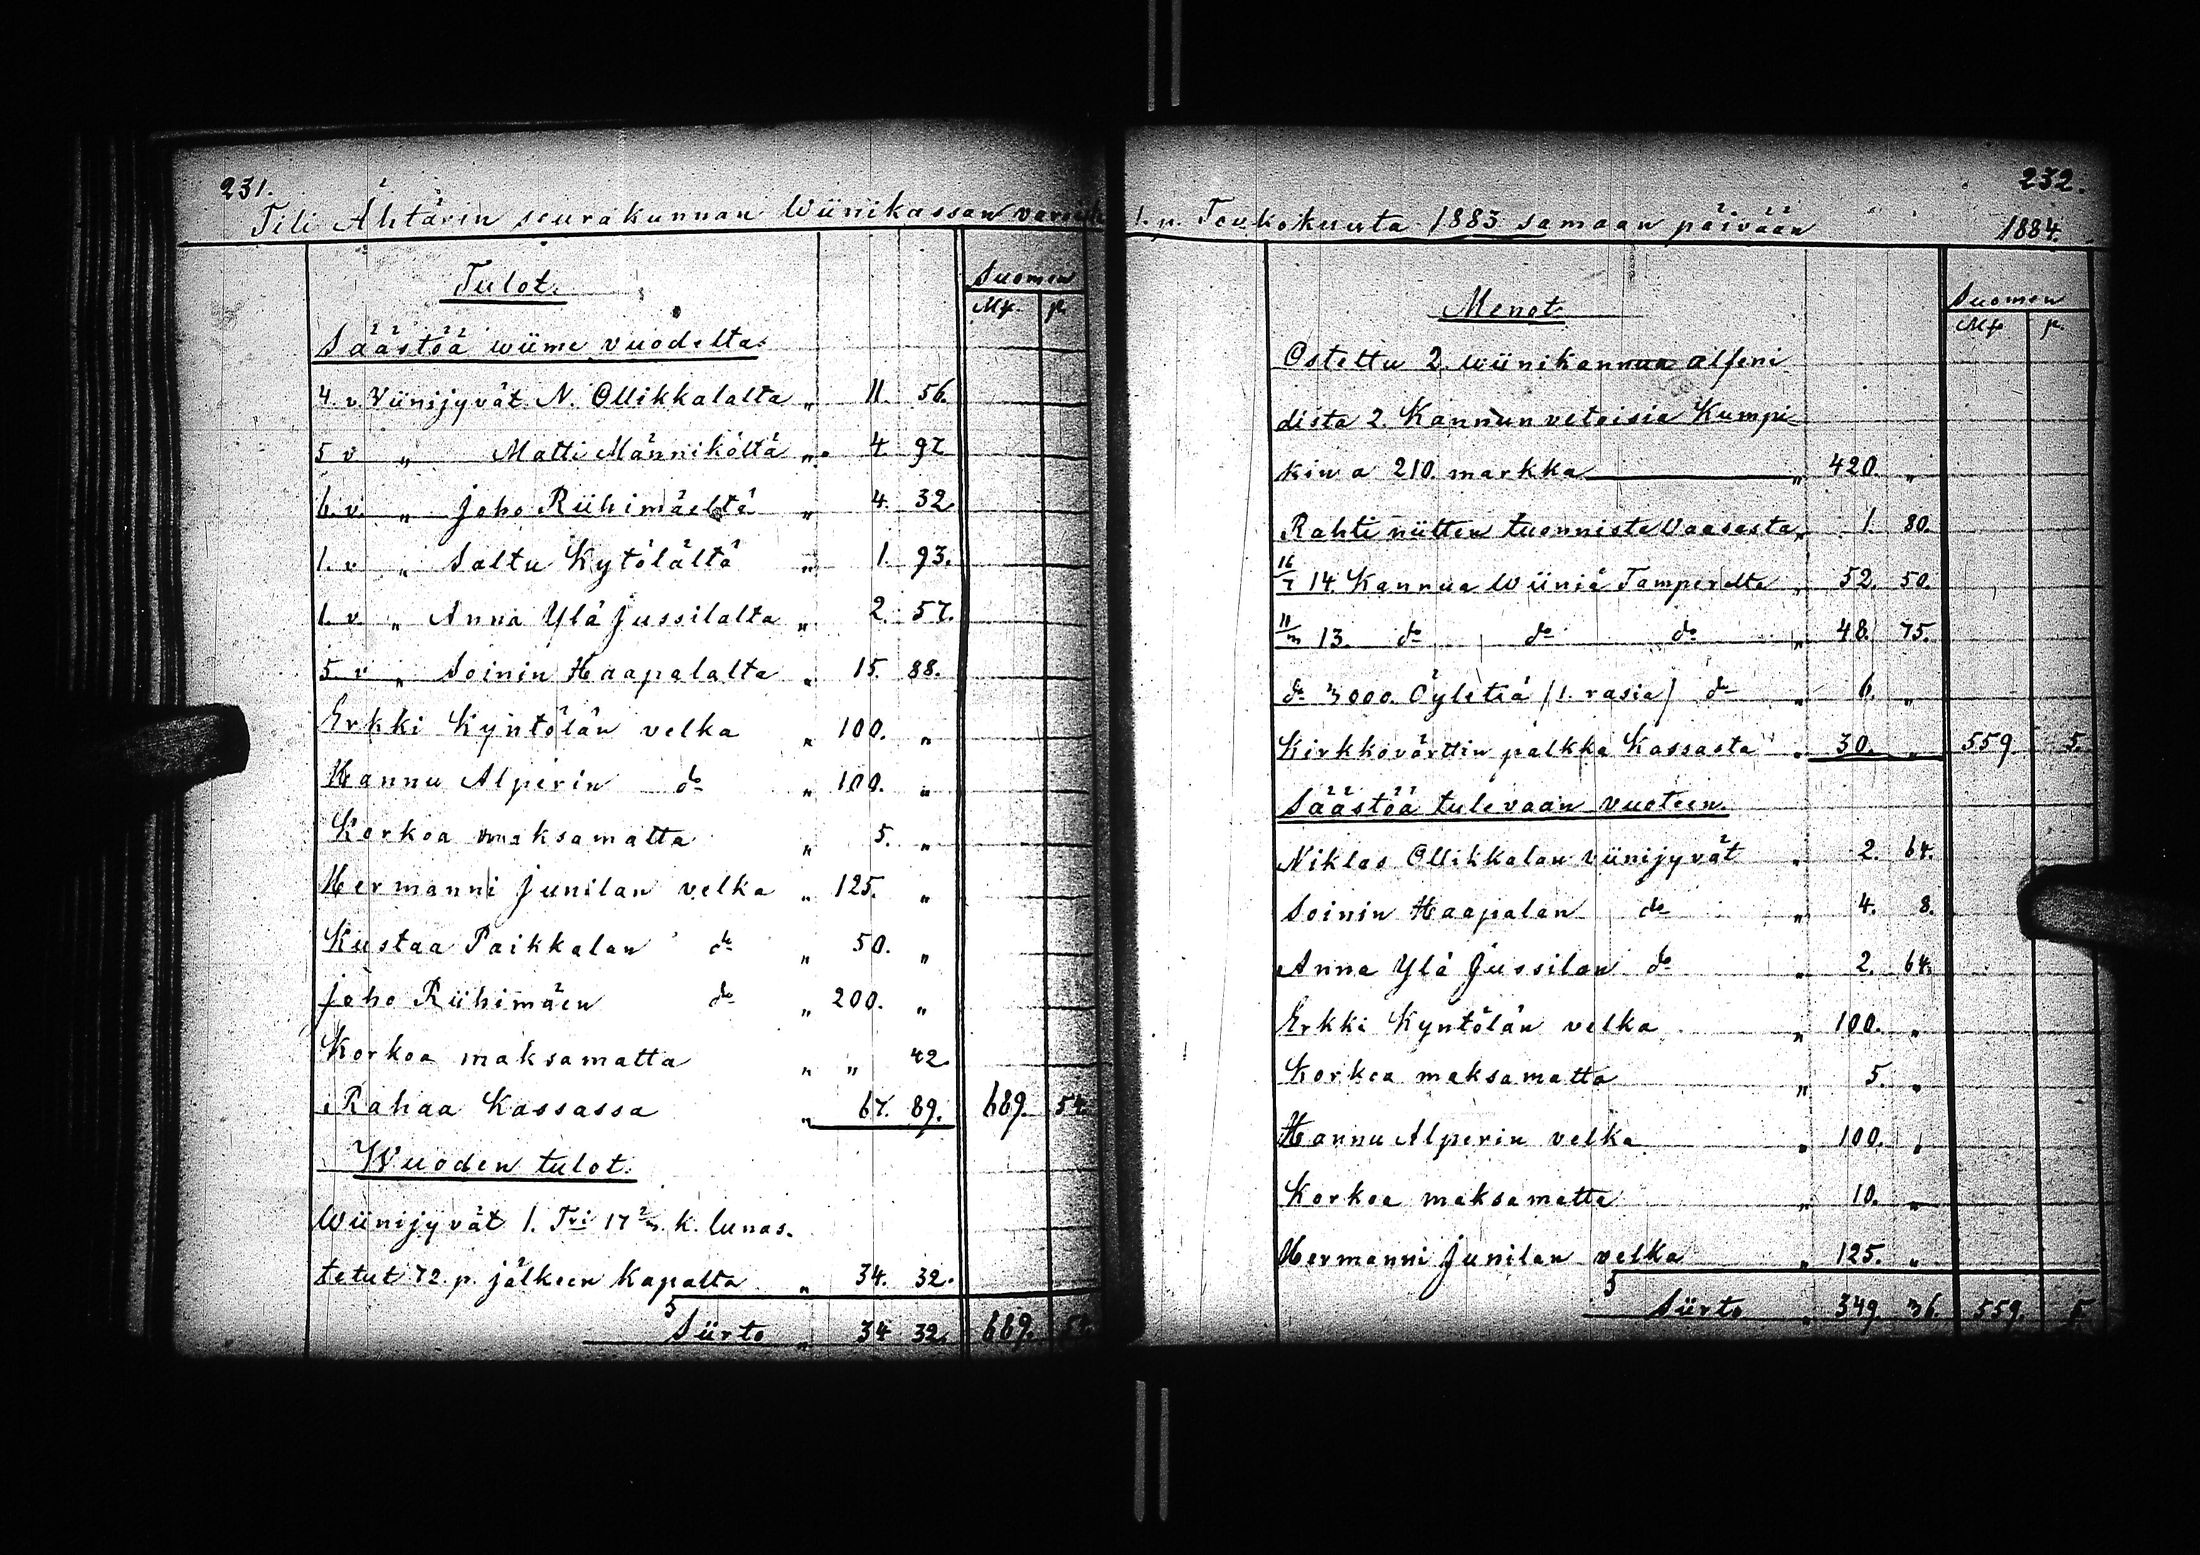 231.
Tili Ähtärin seurakunnan Wiinikassan
Tulot.
Suomen
Mk. p.
Säästöä wiime vuodelta.
4. v. Viinijyvät N. Ollikkalalta „ 11. 56.
5 v „ Matti Männiköltä „ 4. 97
6. v. „ Joho Riihimäeltä „ 4. 32.
1. v „ Saltu Kytölältä „ 1. 93.
1. v. „ Anna Ylä Jussilalta „ 2. 57.
5. v „ Soinin Haapalalta „ 15. 88.
Erkki Kyntölän velka „ 100. „
Hannu Alperin do „ 100. „
Korkoa maksamatta „ 5. „
Hermanni Junilan velka „ 125. „
Kustaa Paikkalan do „ 50. „
Joho Riihimäen do „ 200. „
Korkoa maksamatta „ „ 42.
Rahaa Kassassa „ 67. 89. 689. 54.
Wuoden tulot.
Wiinijyvät 1. Tri 17 k. lunas.
tetut 72. p. jälkeen Kapalta „ 34. 32.
Siirto „ 34 32. 689. 54.
232.
1. p. Toukokuuta 1883 samaan päivään 1884.
Menot.
Suomen
Mk p.
Ostettu 2. wiinikannua alfeni
dista 2. Kannun vetoisia Kumpi-
kin a 210. markka „ 420. „
Rahti niitten tuonnista Vaasasta „ 1. 80.
16/7 14. Kannua Wiiniä Tamperelta „ 52. 50.
13. do do do „ 48. 75.
do 3000. Öylätiä (1. rasia) do „ 6. „
Kirkkovärttin palkka Kassasta „ 30. „ 559 5.
Säästöä tulevaan vuoteen.
Niklas Ollikkalan viinijyvät „ 2. 64.
Soinin Haapalan do „ 4. 8.
Anna Ylä Jussilan do „ 2. 64.
Erkki Kyntölän velka „ 100. „
Korkoa maksamatta „ 5. „
Hannu Alperin velka „ 100. „
Korkoa maksamatta „ 10. „
Hermanni Junilan velka „ 125. „
Siirto „ 349. 36. 559. 5.